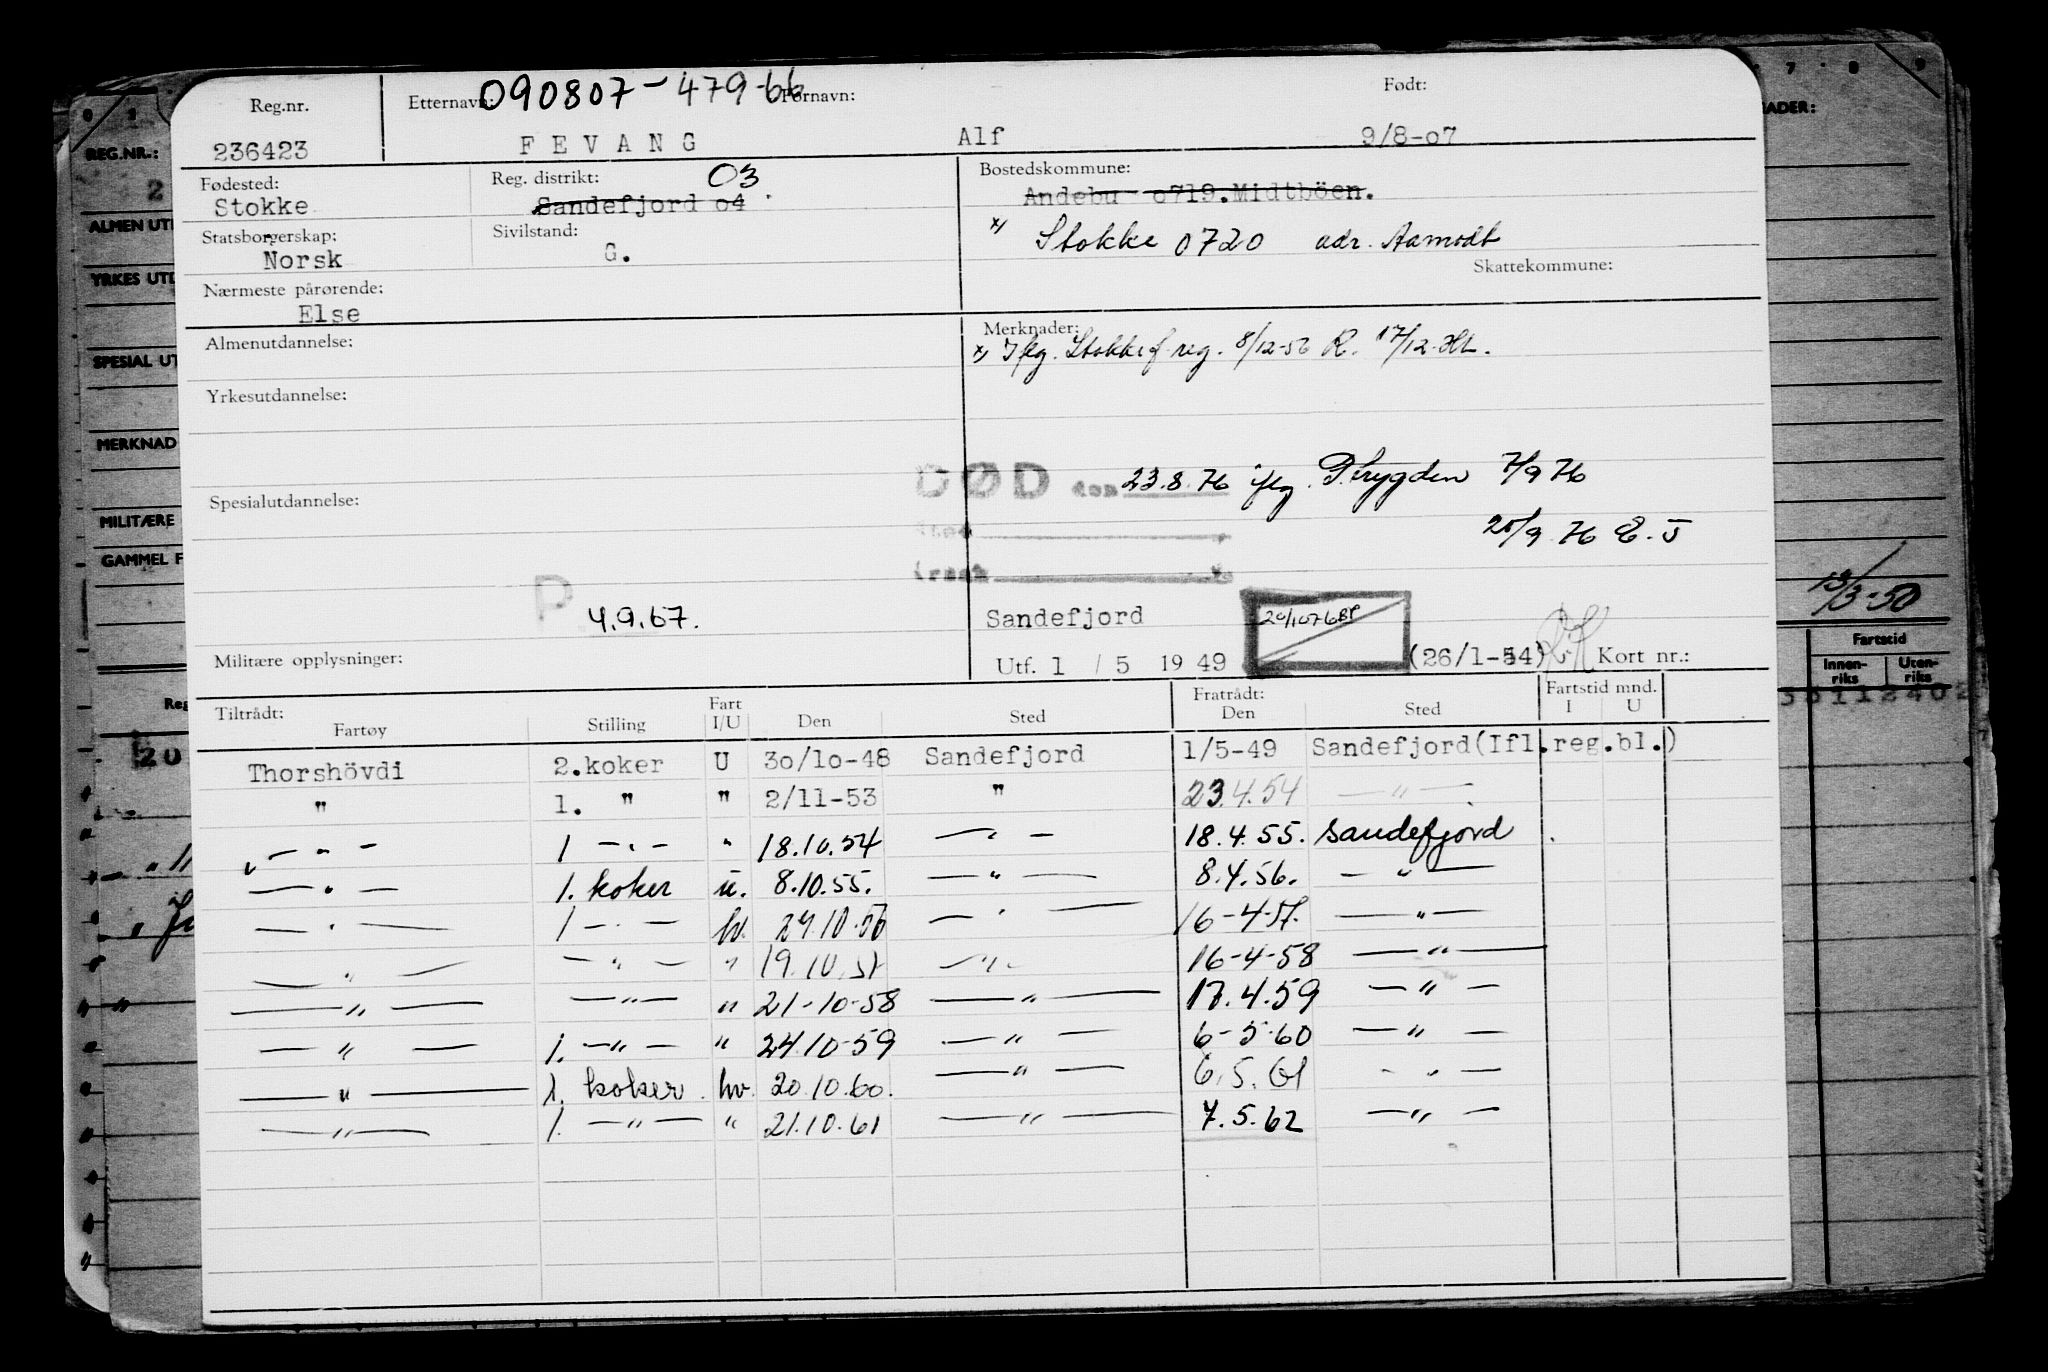 090807-479-66
Reg.nr. Etternavn: Fornavn: Født:
236423 FEVANG Alf 9/8-07
Fødested: Reg. distrikt: 03 Bostedskommune:
Stokke Sandefjord 04 Andebu 0719.Midtböen.
Statsborgerskap: Sivilstand: x) Stokke 0720 adr. Aamodt
Norsk G. Skattekommune:
Nærmeste pårørende:
Else
Almenutdannelse: Merknader:
x) Iflg. Stokke f.reg. 8/12-56 R. 17/12.
Yrkesutdannelse:
DØD den 23.8.76 iflg. P.trygden 7/9 76
Spesialutdannelse:
25/9 76 E.J
årsak
P 4.9.67.
Sandefjord 20/10 76
Militære opplysninger: Utf. 1 / 5 1949 (26/1-54) Kort nr.:
Tiltrådt: Fratrådt: Fartstid mnd.
Fartøy Stilling Fart I/U Den Sted Den Sted I U
Thorshövdi 2.koker U 30/10-48 Sandefjord 1/5-49 Sandefjord(Ifl.reg.bl.)
" 1. " " 2/11-53 " 23.4.54 —"—
—"— 1 —"— " 18.10.54 —"— 18.4.55. Sandefjord
—"— 1. koker u. 8.10.55. —"— 8.4.56. —"—
—"— 1 —"— hv. 24.10.56 —"— 16-4-57. —"—
—"— —"— " 19.10.57 —"— 16-4-58 —"—
—"— —"— " 21-10-58 —"— 17.4.59 —"—
—"— 1. —"— " 24.10-59 —"— 6-5-60 —"—
—"— 1. koker. hv. 20.10.60. —"— 6.5.61 —"—
—"— 1. —"— " 21.10.61 —"— 7.5.62 —"—
REG.NR.:
2
ALMEN UTD
YRKES UTD
SPESIAL UT
MERKNAD
MILITÆRE
GAMMEL F
Reg
20
7 8 9
NADER:
13/3-50
Fartstid
Innen-riks Uten-riks